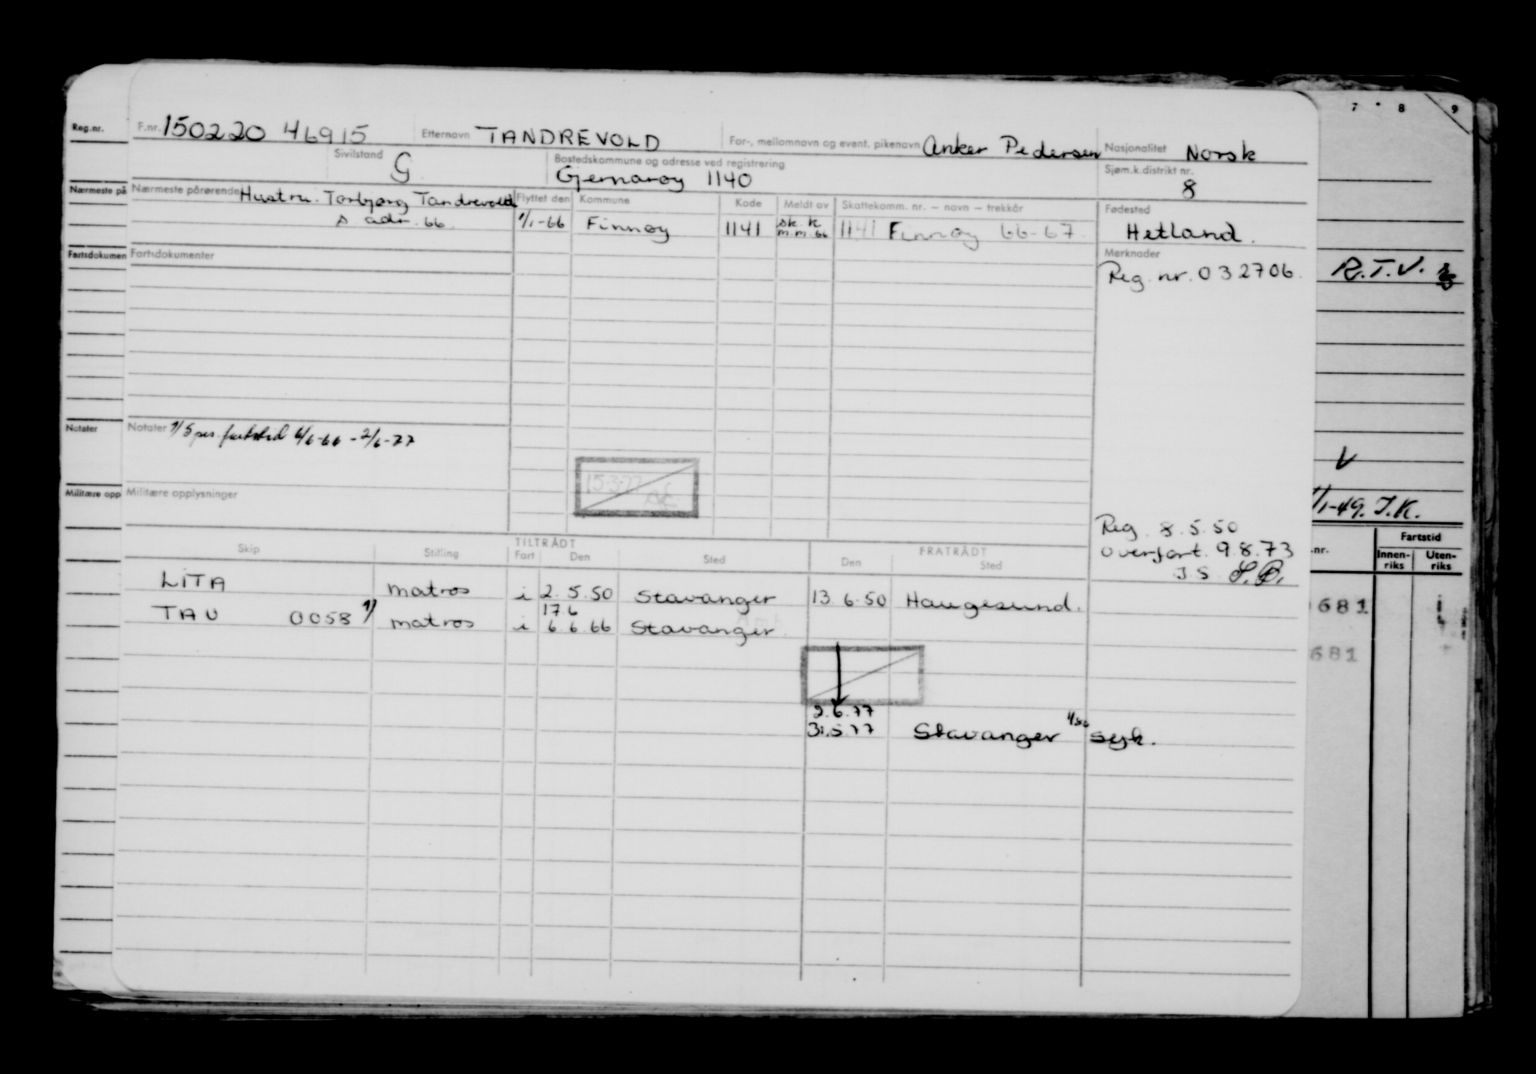 7 8 9
Reg.nr. F.nr. 150220 46915 Etternavn TANDREVOLD For-, mellomnavn og event. pikenavn Anker Pedersen Nasjonalitet Norsk
Sivilstand G Bostedskommune og adresse ved registrering Gjernarøy 1140 Sjøm.k.distrikt nr. 8
Nærmeste på Nærmeste pårørende Hustru. Torbjørg Tandrevold Flyttet den Kommune Kode Meldt av Skattekomm. nr. – navn – trekkår Fødested
s adr. 66. 1/1-66 Finnøy 1141 sk. k m.m. 66 1141 Finnøy 66-67. Hetland.
Fartsdokumen Fartsdokumenter Merknader
Reg. nr. 032706. R.T.V.
Notater Notater 1/ Sper fartstid 6/6-66 - 2/6-77
V
15-3-77
Militære opp Militære opplysninger
1/1-49. J.K.
Reg. 8.5.50
Overført. 9.8.73
J.S.
TILTRÅDT FRATRÅDT
Skip Stilling Fart Den Sted Den Sted
-nr. Fartstid
Innen-riks Uten-riks
LITA matros i 2. 5. 50 Stavanger 13. 6. 50 Haugesund. 681
17.6
TAU 0058 1/ matros i 6. 6. 66 Stavanger.
681
2.6.77
31.5 77 Stavanger syk.